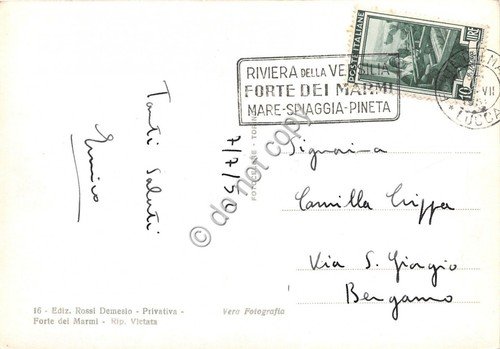 POSTE ITALIANE
10 LIRE
RIVIERA DELLA VERSILIA
FORTE DEI MARMI
MARE-SPIAGGIA-PINETA
VII
LUCCA
Tanti Saluti
Enrico
7/7/50
do not copy
Signorina
Camilla Crippa
Via S. Giorgio
Bergamo
16 - Ediz. Rossi Demesio - Privativa -
Forte dei Marmi - Rip. Vietata
Vera Fotografia